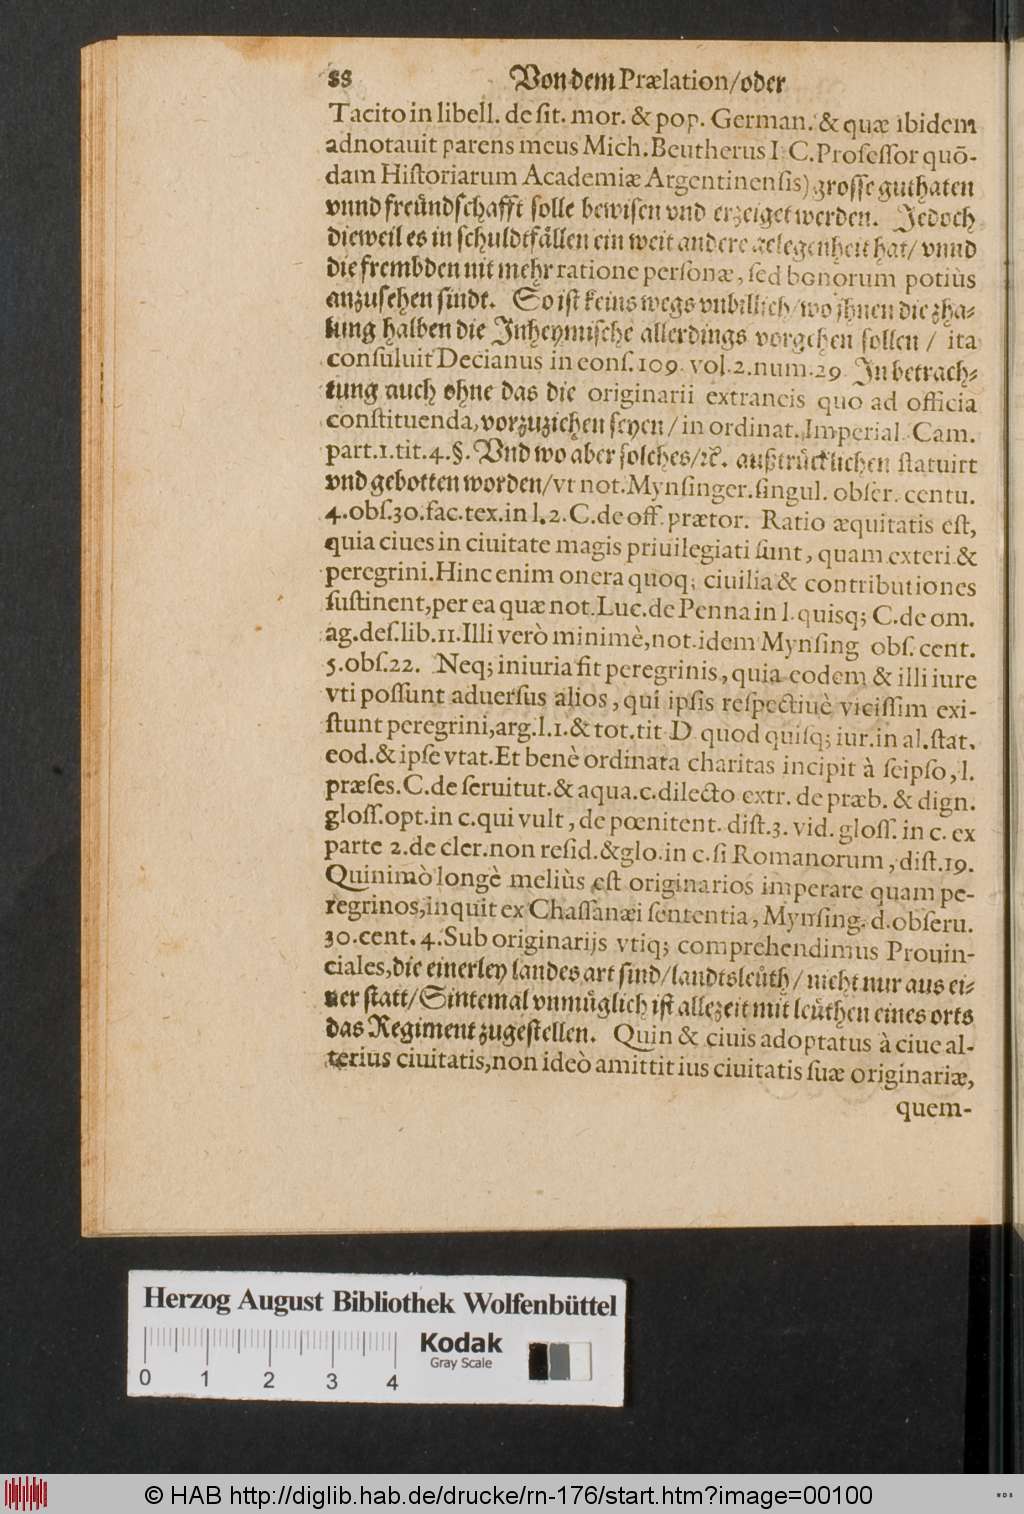 88 Von dem Prælation/oder
Tacito in libell. de sit. mor. & pop. German. & quæ ibidem
adnotauit parens meus Mich. Beutherus I. C. Professor quō-
dam Historiarum Academiæ Argentinensis) grosse guthaten
vnnd freündschafft solle bewisen vnd erzeiget werden. Jedoch
dieweil es in schuldtfällen ein weit andere gelegenheit hat/ vnnd
die frembden nit mehr ratione personæ, sed bonorum potiùs
anzusehen sindt. So ist keins wegs vnbillich/wo jhnen die zha-
lung halben die Inheymische allerdings vorgehen sollen / ita
consuluit Decianus in cons. 109. vol. 2. num. 29 In betrach-
tung auch ohne das die originarii extraneis quo ad officia
constituenda, vorzuziehen seyen / in ordinat. Imperial. Cam.
part. 1. tit. 4. §. Vnd wo aber solches/ ꝛc. außtrücklichen statuirt
vnd gebotten worden/ vt not. Mynsinger. singul. obser. centu.
4. obs. 30. fac. tex. in l. 2. C. de off. prætor. Ratio æquitatis est,
quia ciues in ciuitate magis priuilegiati sunt, quam exteri &
peregrini. Hinc enim onera quoq; ciuilia & contributiones
sustinent, per ea quæ not. Luc. de Penna in l. quisq; C. de om.
ag. des. lib. 11. Illi verò minimè, not. idem Mynsing obs. cent.
5. obs. 22. Neq; iniuria fit peregrinis, quia eodem & illi iure
vti possunt aduersus alios, qui ipsis respectiuè vicissim exi-
stunt peregrini, arg. l. 1. & tot. tit D quod quisq; iur. in al. stat.
eod. & ipse vtat. Et benè ordinata charitas incipit à seipso, l.
præses. C. de seruitut. & aqua. c. dilecto extr. de præb. & dign.
gloss. opt. in c. qui vult, de pœnitent. dist. 3. vid. gloss. in c. ex
parte 2. de cler. non resid. & glo. in c. si Romanorum, dist. 19.
Quinimò longè meliùs est originarios imperare quam pe-
regrinos, inquit ex Chassanæi sententia, Mynsing. d. obseru.
30. cent. 4. Sub originarijs vtiq; comprehendimus Prouin-
ciales, die einerley landes art sind/ landtsleüth/ nicht nur aus ei-
ner statt/ Sintemal vnmüglich ist allezeit mit leüthen eines orts
das Regiment zugestellen. Quin & ciuis adoptatus à ciue al-
terius ciuitatis, non ideò amittit ius ciuitatis suæ originariæ,
quem-
Herzog August Bibliothek Wolfenbüttel
Kodak
Gray Scale
0 1 2 3 4
© HAB http://diglib.hab.de/drucke/rn-176/start.htm?image=00100